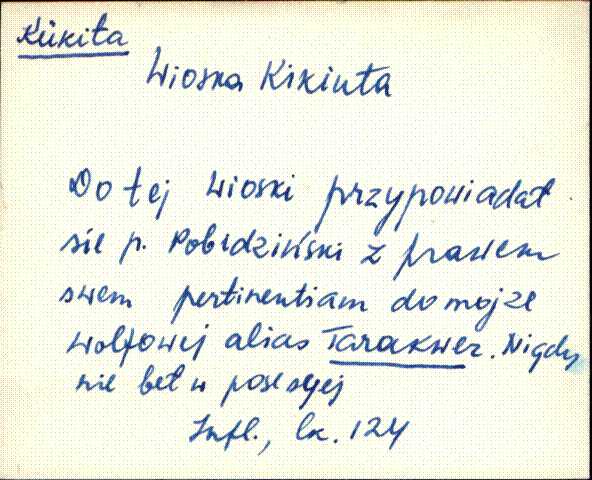 Kükita
Wioska Kikiuta
Do tej wioski przypowiadał
sie p. Pobidziński z prawem
swem pertinentiam do mojze
wolfowej alias Tarakwer. Nigdy
nie beł w posesyej
Infl., lk. 124